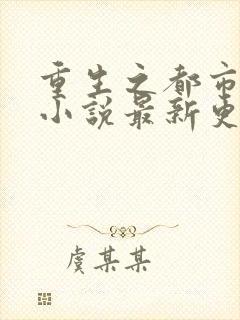 重生之都市
小说最新更
虞某某